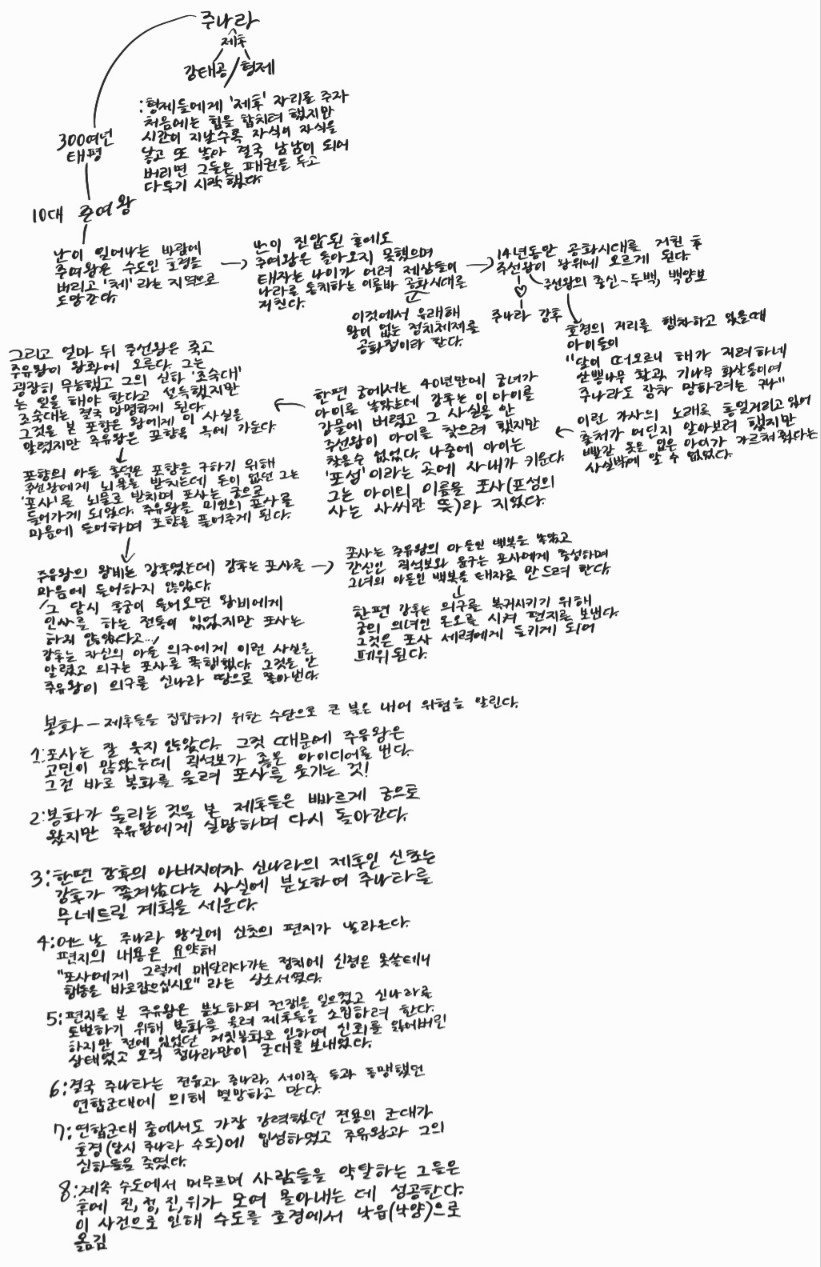 주나라
제후
강태공/형제
:형제들에게 '제후' 자리를 주자
처음에는 힘을 합치려 했지만
시간이 지날수록 자식이 자식을
낳고 또 낳아 결국 남남이 되어
버리면 그들은 패권을 두고
다투기 시작했다.
300여년
태평
10대 주여왕
난이 일어나는 바람에
주여왕은 수도인 호경을
버리고 '체' 라는 지역으로
도망간다.
난이 진압된 후에도
주여왕은 돌아오지 못했으며
태자는 나이가 어려 제상들이
나라를 통치하는 이른바 공화시대를
거친다.
이것에서 유래해
왕이 없는 정치체제를
공화정이라 한다.
14년동안 공화시대를 거친 후
주선왕이 왕위에 오르게 된다
주선왕의 충신~두백, 백양보
주나라 강후
호경의 거리를 행차하고 있을때
아이들이
"달이 떠오르니 해가 지려하네
산뽕나무 활과, 기나무 화살통이여
주나라도 장차 망하려는 구나"
이런 가사의 노래를 흥얼거리고 있어
출처가 어딘지 알아보려 했지만
빨간 옷을 입은 아이가 가르쳐줬다는
사실밖에 알 수 없었다.
한편 궁에서는 40년만에 궁녀가
아이를 낳았는데 강후는 이 아이를
강물에 버렸고 그 사실을 안
주선왕이 아이를 찾으려 했지만
찾을수 없었다. 나중에 아이는
'포성' 이라는 곳에 사내가 키운다.
그는 아이의 이름을 포사(포성의
사는 사씨란 뜻)라 지었다.
그리고 얼마 뒤 주선왕은 죽고
주유왕이 왕좌에 오른다. 그는
굉장히 무능했고 그의 신하 '조숙대'
는 일을 해야 한다고 설득했지만
조숙대는 결국 망명하게 된다.
그것을 본 포향은 왕에게 이 사실을
알렸지만 주유왕은 포향을 옥에 가둔다
포향의 아들 홍덕은 포향을 구하기 위해
주선왕에게 뇌물을 받치는데 돈이 없던 그는
'포사'를 뇌물로 받치며 포사는 궁으로
들어가게 되었다. 주유왕은 미인의 포사를
마음에 들어하며 포향을 풀어주게 된다.
주유왕의 왕비는 강후였는데 강후는 포사를
마음에 들어하지 않았다.
그 당시 후궁이 들어오면 왕비에게
인사를 하는 전통이 있었지만 포사는
하지 않았다고..!
강후는 자신의 아들 의구에게 이런 사실을
알렸고 의구는 포사를 폭행했다. 그것을 안
주유왕이 의구를 신나라 땅으로 쫓아낸다.
포사는 주유왕의 아들인 백복을 낳았고
간신인 괵석보와 윤구는 포사에게 충성하며
그녀의 아들인 백복을 태자로 만드려 한다.
한편 강후는 의구를 복귀시키기 위해
궁의 의녀인 온오를 시켜 편지를 보낸다.
그것은 포사 세력에게 들키게 되어
폐위된다.
봉화 - 제후들을 집합하기 위한 수단으로 큰 불을 내어 위험을 알린다.
1:포사는 잘 웃지 않았다. 그것 때문에 주유왕은
고민이 많았는데 괵석보가 좋은 아이디어를 낸다.
그건 바로 봉화를 올려 포사를 웃기는 것!
2:봉화가 울리는 것을 본 제후들은 빠르게 궁으로
왔지만 주유왕에게 실망하며 다시 돌아간다.
3:한편 강후의 아버지이자 신나라의 제후인 신초는
강후가 쫓겨났다는 사실에 분노하여 주나라를
무네트릴 계획을 세운다.
4:어느 날 주나라 왕실에 신초의 편지가 날라온다.
편지의 내용은 요약해
"포사에게 그렇게 매달리다가는 정치에 신경은 못쓸테니
행동을 바로잡으십시오" 라는 상소서였다.
5:편지를 본 주유왕은 분노하며 전쟁을 일으켰고 신나라를
토벌하기 위해 봉화를 올려 제후들을 소집하려 한다.
하지만 전에 있었던 거짓봉화로 인하여 신뢰를 잃어버린
상태였고 오직 정나라만이 군대를 보내었다.
6:결국 주나라는 견융과 증나라, 서이족 등과 동맹했던
연합군대에 의해 멸망하고 만다.
7:연합군대 중에서도 가장 강력했던 견융의 군대가
호경(당시 주나라 수도)에 입성하였고 주유왕과 그의
신하들을 죽였다.
8:계속 수도에서 머무르며 사람들을 약탈하는 그들은
후에 진, 정, 진, 위가 모여 몰아내는 데 성공한다.
이 사건으로 인해 수도를 호경에서 낙읍(낙양)으로
옮김